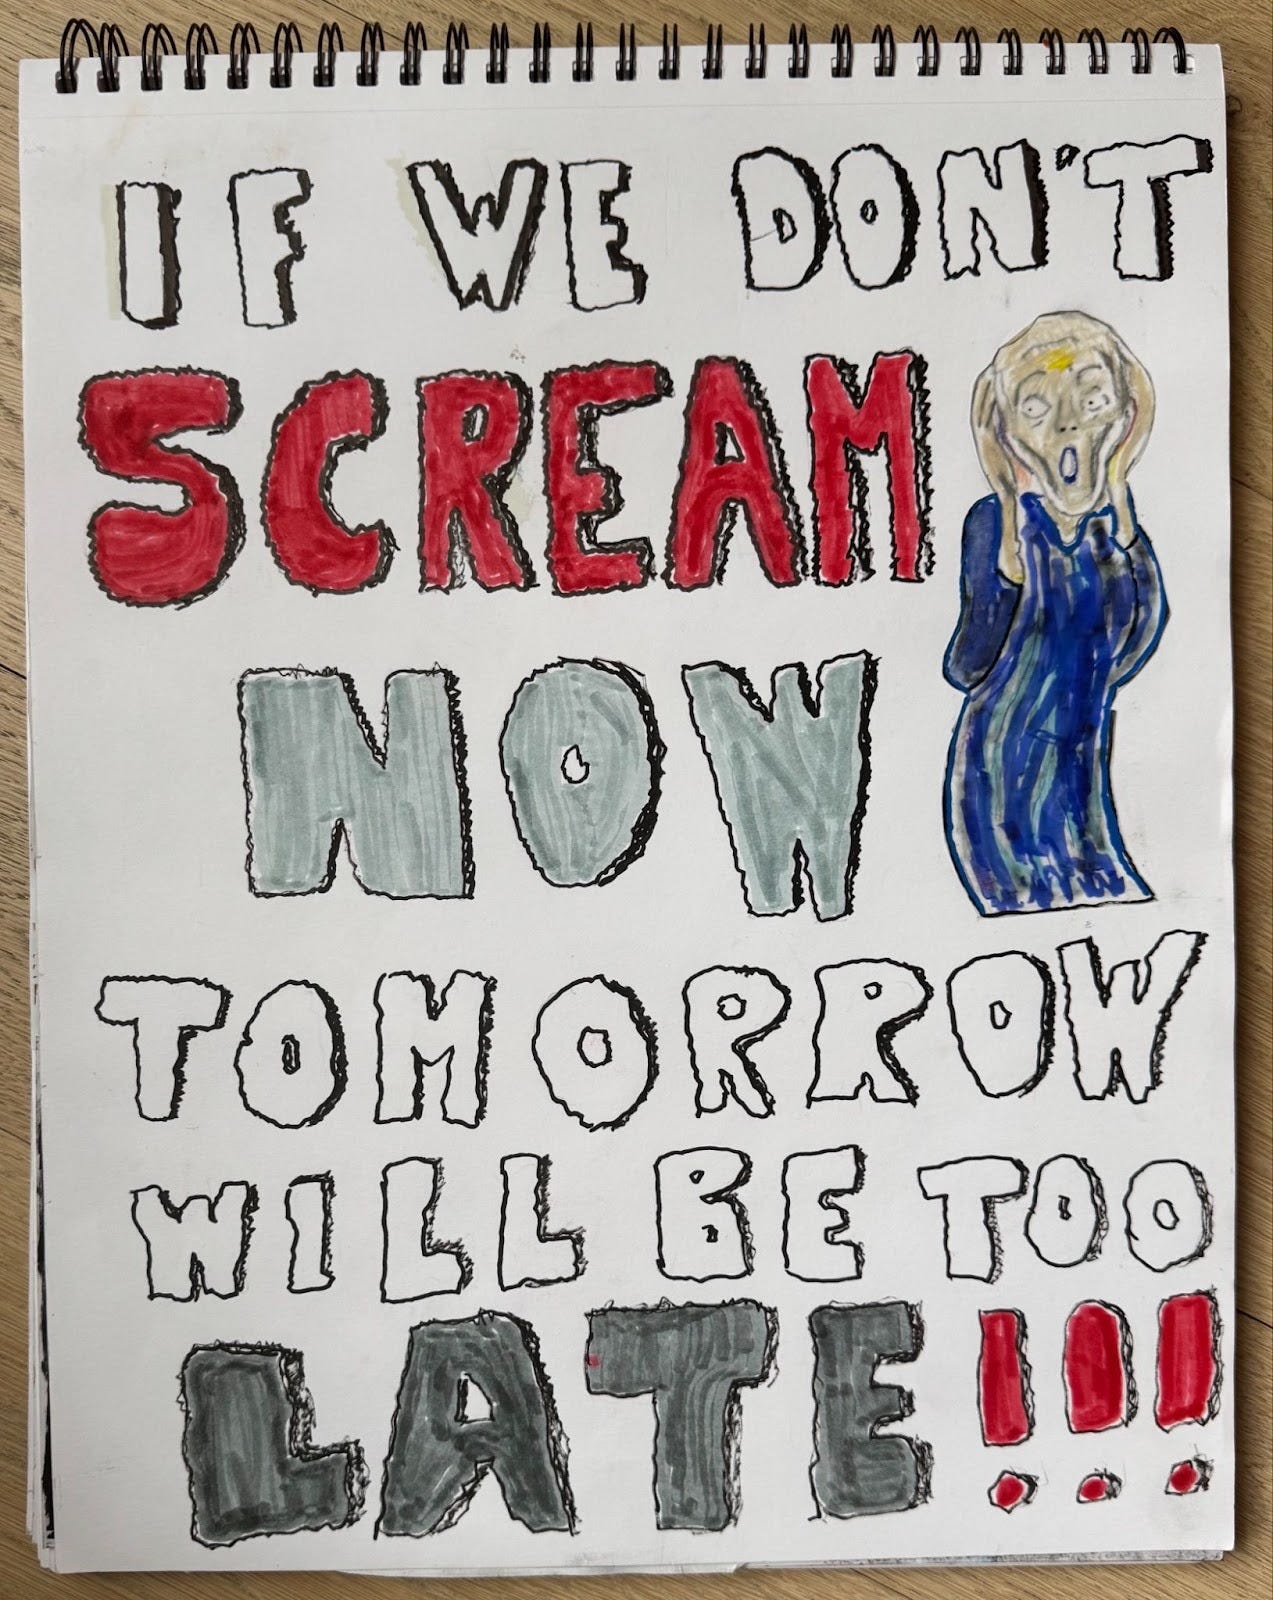 IF WE DON'T
SCREAM
NOW
TOMORROW
WILL BE TOO
LATE!!!